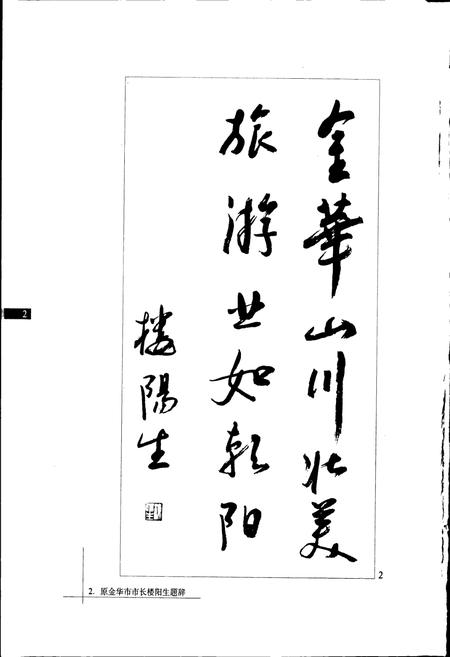 金華山川壮美
旅游业如朝阳
楼陽生
2
2
2. 原金华市市长楼阳生题辞